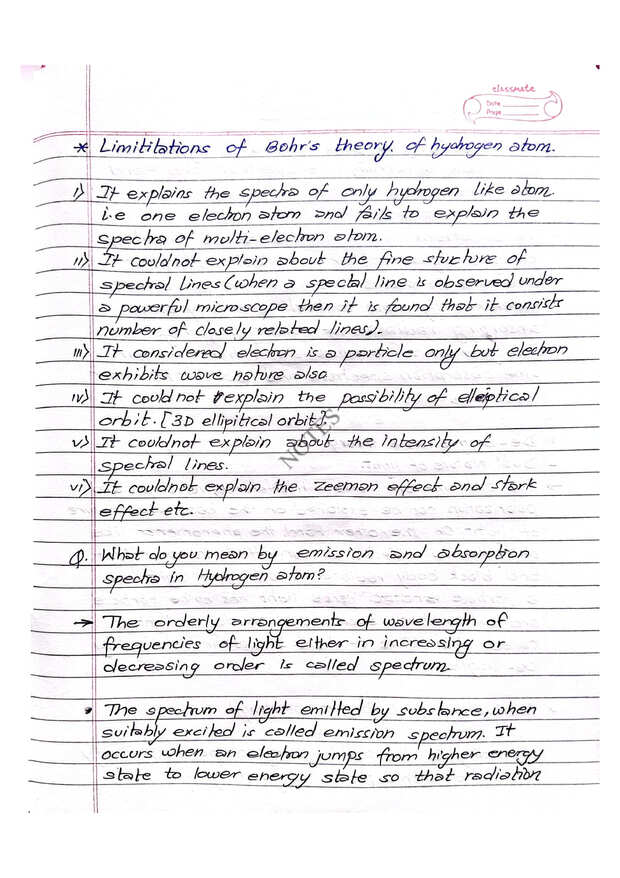 classmate
Date
Page
* Limititations of Bohr's theory. of hydrogen atom.
i) It explains the spectra of only hydrogen like atom
i.e one electron atom and fails to explain the
spectra of multi-electron atom.
ii) It couldnot explain about the fine stucture of
spectral lines (when a spectal line is observed under
a powerful microscope then it is found that it consists
number of closely related lines).
iii) It considered electron is a particle only but electron
exhibits wave nature also
iv) It could not explain the possibility of elleptical
orbit. [3D ellipitical orbit].
v) It couldnot explain about the intensity of
spectral lines.
NOTES
vi) It couldnot explain the zeeman effect and stark
effect etc.
Q. What do you mean by emission and absorption
spectra in Hydrogen atom?
→ The orderly arrangements of wavelength of
frequencies of light either in increasing or
decreasing order is called spectrum
• The spectrum of light emitted by substance, when
suitably excited is called emission spectrum. It
occurs when an electron jumps from higher energy
state to lower energy state so that radiation